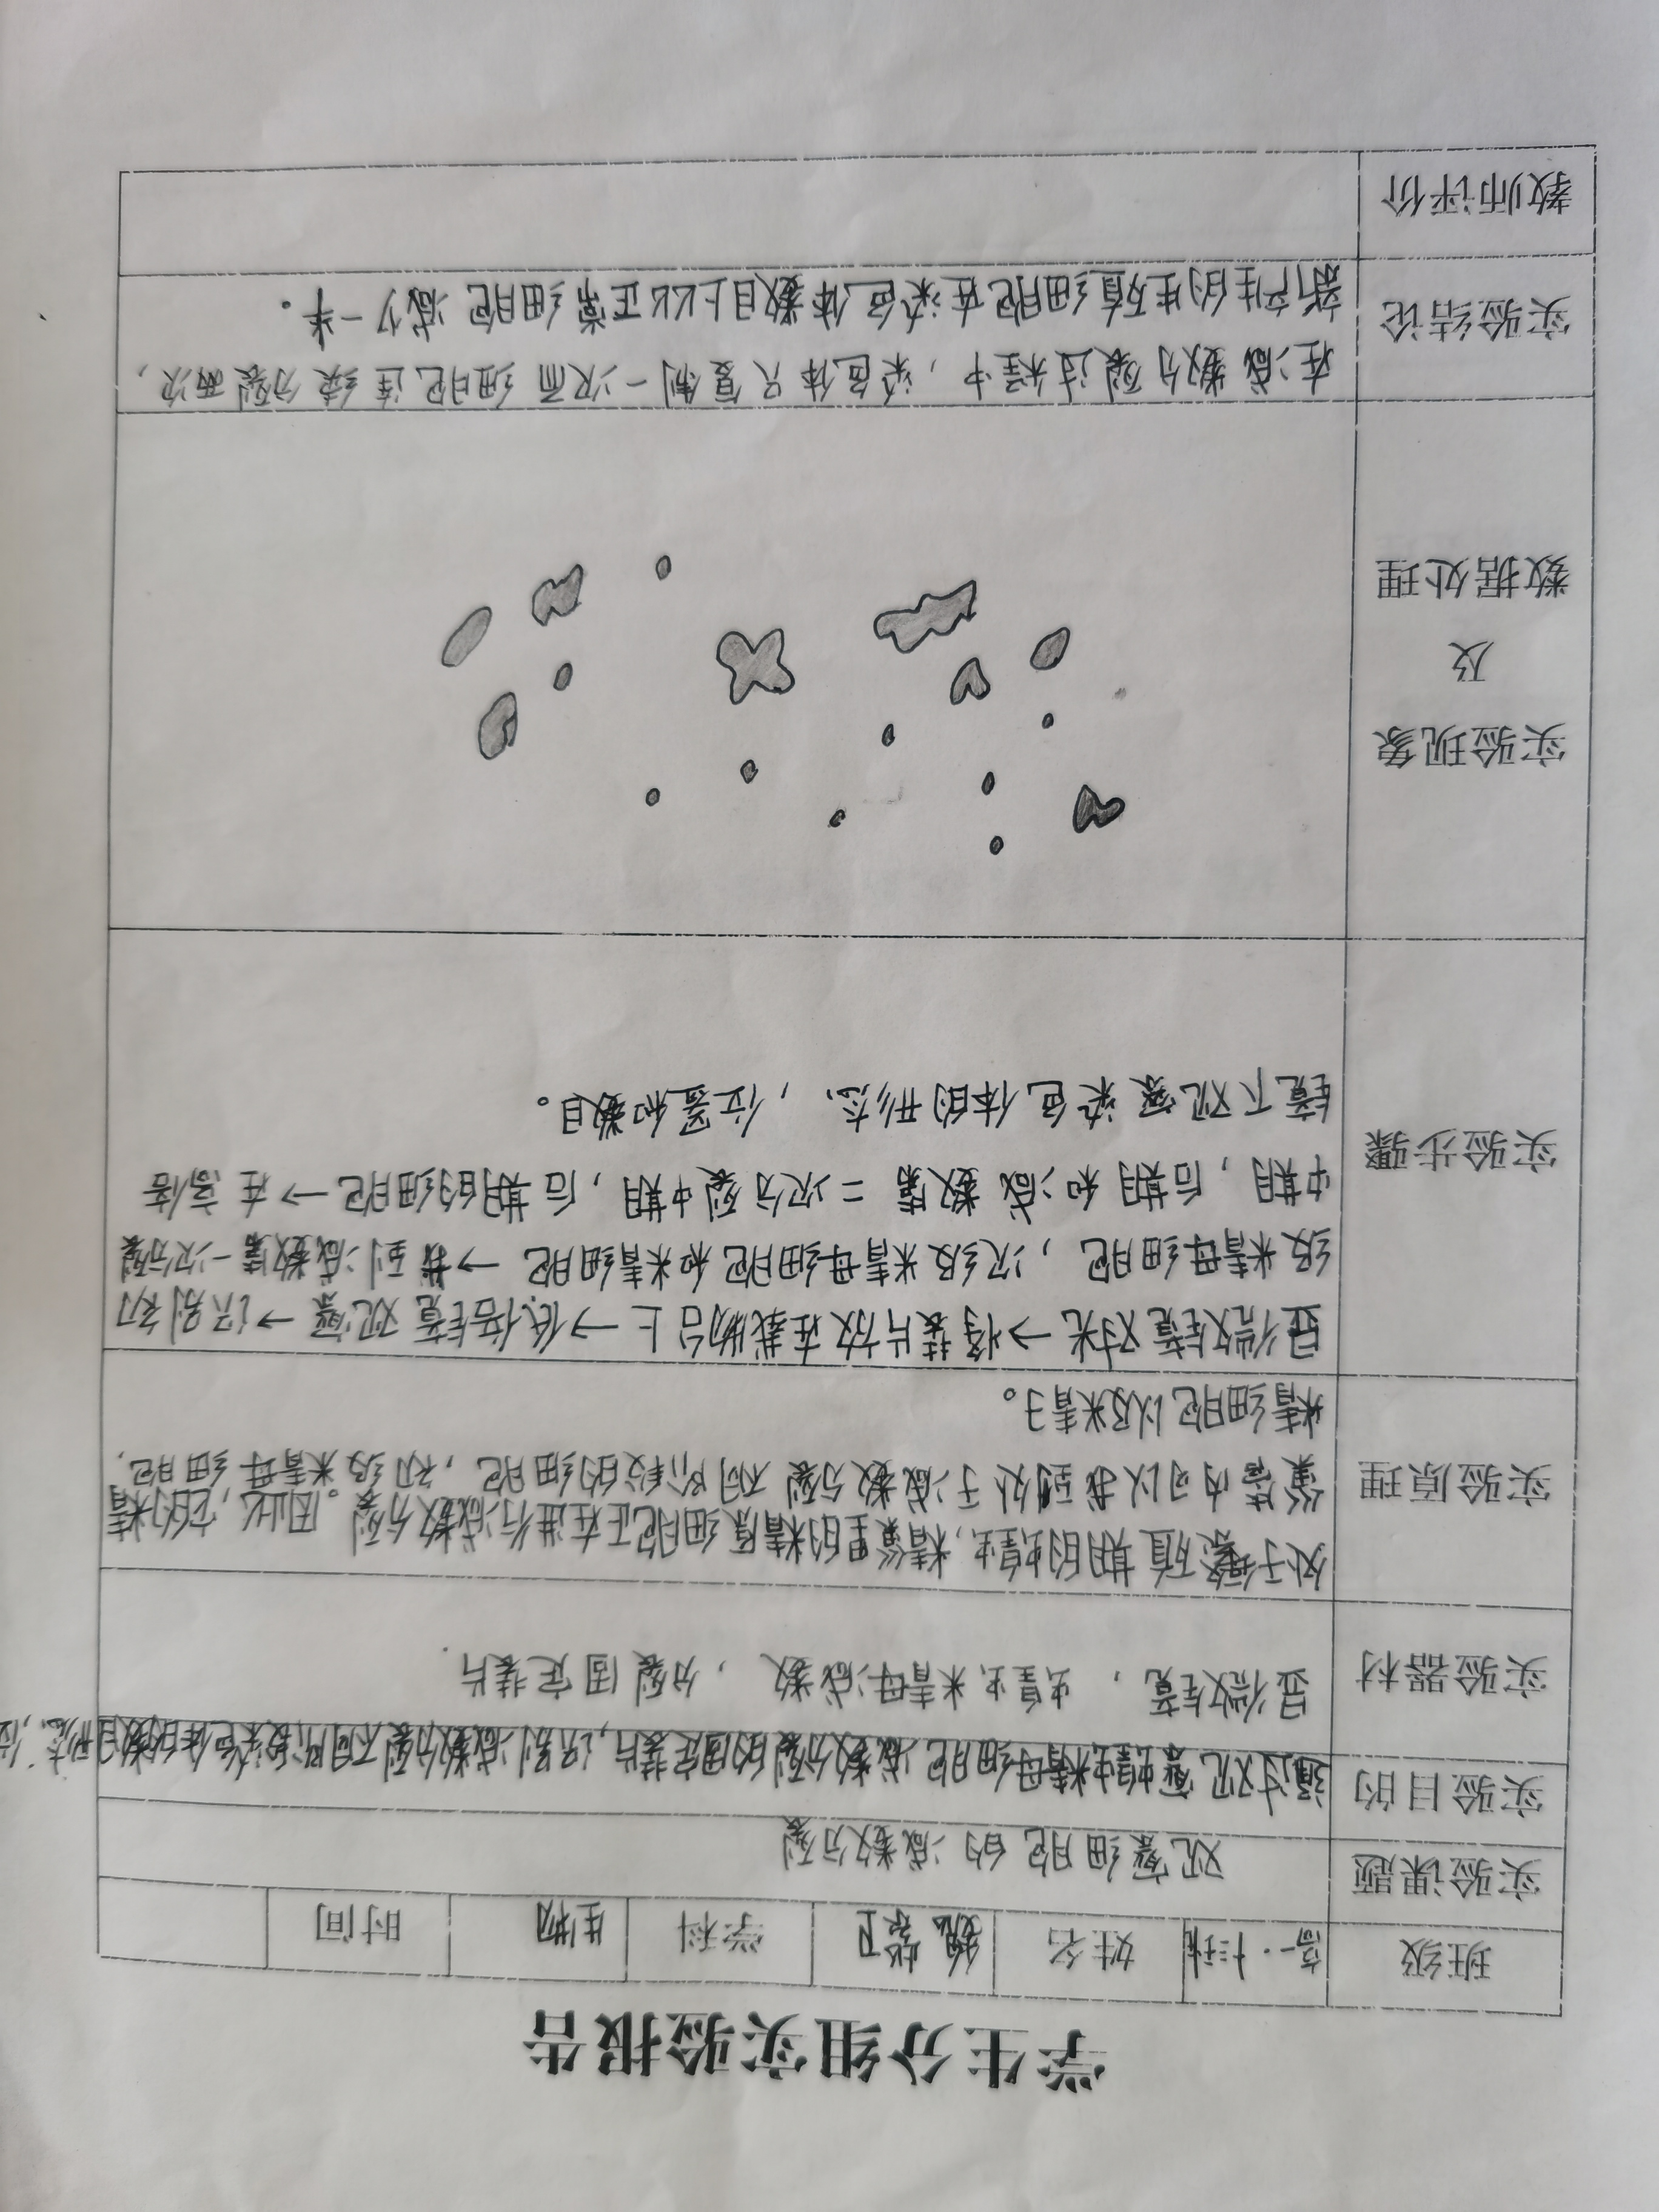 学生分组实验报告
班级 高一·十三班 姓名 学科 生物 时间
实验课题 观察细胞的减数分裂
实验目的 通过观察蝗虫精母细胞减数分裂的固定装片,识别减数分裂不同阶段染色体的数目形态,位
实验器材 显微镜,蝗虫精母减数,分裂固定装片.
实验原理 处于繁殖期的蝗虫,精巢里的精原细胞正在进行减数分裂。因此,它的精
巢管内可以找到处于减数分裂不同阶段的细胞,初级精母细胞,
精细胞以及精子。
实验步骤 显微镜对光→将装片放在载物台上→低倍镜观察→识别初
级精母细胞,次级精母细胞和精细胞→找到减数第一次分裂
中期,后期和减数第二次分裂中期,后期的细胞→在高倍
镜下观察染色体的形态,位置和数目。
实验现象
及
数据处理
实验结论 在减数分裂过程中,染色体只复制一次而细胞连续分裂两次,
新产生的生殖细胞在染色体数目上比正常细胞减少一半。
教师评价